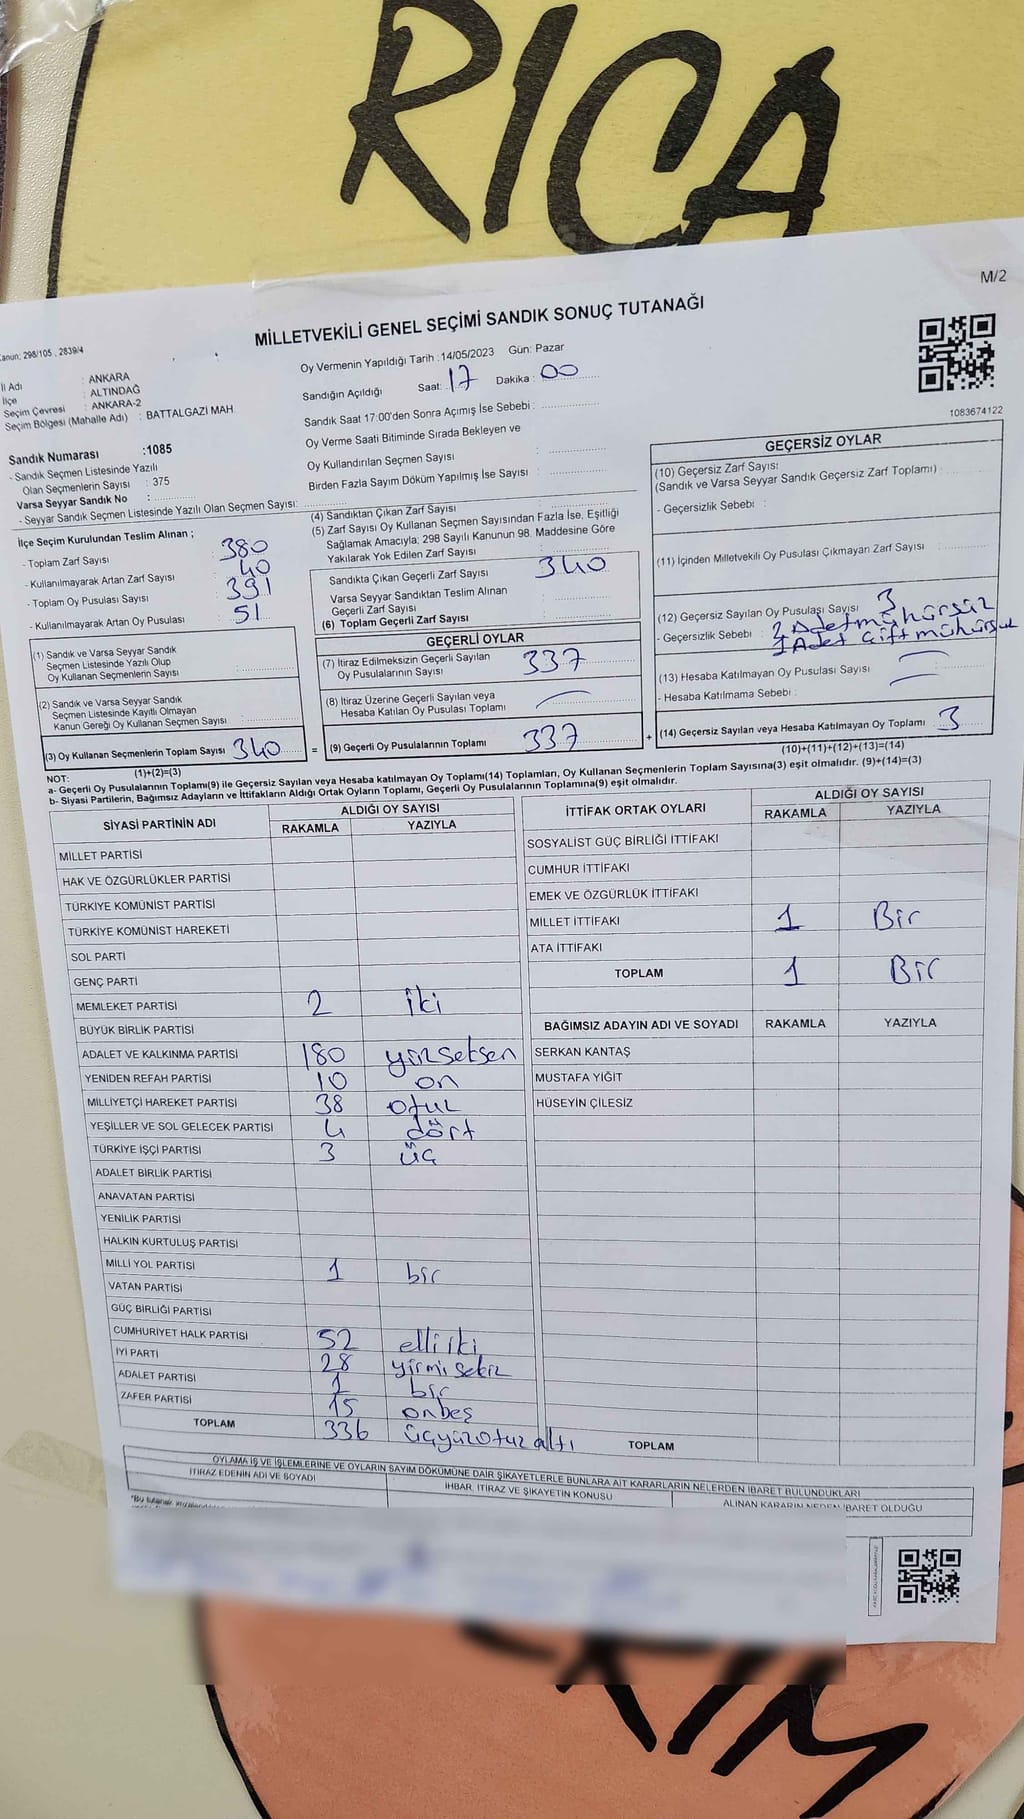 RICA
M/2
MİLLETVEKİLİ GENEL SEÇİMİ SANDIK SONUÇ TUTANAĞI
Kanun: 298/105 , 2839/4
İl Adı : ANKARA
İlçe : ALTINDAĞ
Seçim Çevresi : ANKARA-2
Seçim Bölgesi (Mahalle Adı) : BATTALGAZİ MAH.
Oy Vermenin Yapıldığı Tarih : 14/05/2023 Gün: Pazar
Sandığın Açıldığı Saat: 17 Dakika : 00
Sandık Saat 17:00'den Sonra Açımış İse Sebebi :
Oy Verme Saati Bitiminde Sırada Bekleyen ve
Oy Kullandırılan Seçmen Sayısı :
Birden Fazla Sayım Döküm Yapılmış İse Sayısı :
1083674122
Sandık Numarası :1085
- Sandık Seçmen Listesinde Yazılı
Olan Seçmenlerin Sayısı : 375
Varsa Seyyar Sandık No :
- Seyyar Sandık Seçmen Listesinde Yazılı Olan Seçmen Sayısı:
İlçe Seçim Kurulundan Teslim Alınan ;
- Toplam Zarf Sayısı : 380
- Kullanılmayarak Artan Zarf Sayısı : 40
- Toplam Oy Pusulası Sayısı : 391
- Kullanılmayarak Artan Oy Pusulası : 51
(1) Sandık ve Varsa Seyyar Sandık
Seçmen Listesinde Yazılı Olup
Oy Kullanan Seçmenlerin Sayısı :
(2) Sandık ve Varsa Seyyar Sandık
Seçmen Listesinde Kayıtlı Olmayan
Kanun Gereği Oy Kullanan Seçmen Sayısı :
(3) Oy Kullanan Seçmenlerin Toplam Sayısı 340
(1)+(2)=(3)
(4) Sandıktan Çıkan Zarf Sayısı :
(5) Zarf Sayısı Oy Kullanan Seçmen Sayısından Fazla İse, Eşitliği
Sağlamak Amacıyla; 298 Sayılı Kanunun 98. Maddesine Göre
Yakılarak Yok Edilen Zarf Sayısı :
Sandıkta Çıkan Geçerli Zarf Sayısı : 340
Varsa Seyyar Sandıktan Teslim Alınan
Geçerli Zarf Sayısı :
(6) Toplam Geçerli Zarf Sayısı :
GEÇERLİ OYLAR
(7) İtiraz Edilmeksizin Geçerli Sayılan
Oy Pusulalarının Sayısı : 337
(8) İtiraz Üzerine Geçerli Sayılan veya
Hesaba Katılan Oy Pusulası Toplamı :
= (9) Geçerli Oy Pusulalarının Toplamı : 337 +
GEÇERSİZ OYLAR
(10) Geçersiz Zarf Sayısı
(Sandık ve Varsa Seyyar Sandık Geçersiz Zarf Toplamı) :
- Geçersizlik Sebebi :
(11) İçinden Milletvekili Oy Pusulası Çıkmayan Zarf Sayısı :
(12) Geçersiz Sayılan Oy Pusulası Sayısı : 3
- Geçersizlik Sebebi : 2 Adet mühürsüz
1 Adet Çift mühürsül
(13) Hesaba Katılmayan Oy Pusulası Sayısı :
- Hesaba Katılmama Sebebi :
(14) Geçersiz Sayılan veya Hesaba Katılmayan Oy Toplamı : 3
(10)+(11)+(12)+(13)=(14)
NOT:
a- Geçerli Oy Pusulalarının Toplamı(9) ile Geçersiz Sayılan veya Hesaba katılmayan Oy Toplamı(14) Toplamları, Oy Kullanan Seçmenlerin Toplam Sayısına(3) eşit olmalıdır. (9)+(14)=(3)
b- Siyasi Partilerin, Bağımsız Adayların ve İttifakların Aldığı Ortak Oyların Toplamı, Geçerli Oy Pusulalarının Toplamına(9) eşit olmalıdır.
SİYASİ PARTİNİN ADI ALDIĞI OY SAYISI
RAKAMLA YAZIYLA
MİLLET PARTİSİ
HAK VE ÖZGÜRLÜKLER PARTİSİ
TÜRKİYE KOMÜNİST PARTİSİ
TÜRKİYE KOMÜNİST HAREKETİ
SOL PARTİ
GENÇ PARTİ
MEMLEKET PARTİSİ 2 iki
BÜYÜK BİRLİK PARTİSİ
ADALET VE KALKINMA PARTİSİ 180 yüzseksen
YENİDEN REFAH PARTİSİ 10 on
MİLLİYETÇİ HAREKET PARTİSİ 38 otuz
YEŞİLLER VE SOL GELECEK PARTİSİ 4 dört
TÜRKİYE İŞÇİ PARTİSİ 3 üç
ADALET BİRLİK PARTİSİ
ANAVATAN PARTİSİ
YENİLİK PARTİSİ
HALKIN KURTULUŞ PARTİSİ
MİLLİ YOL PARTİSİ 1 bir
VATAN PARTİSİ
GÜÇ BİRLİĞİ PARTİSİ
CUMHURİYET HALK PARTİSİ 52 elli iki
İYİ PARTİ 28 yirmi sekiz
ADALET PARTİSİ 1 bir
ZAFER PARTİSİ 15 onbeş
TOPLAM 336 üçyüzotuz altı
İTTİFAK ORTAK OYLARI ALDIĞI OY SAYISI
RAKAMLA YAZIYLA
SOSYALİST GÜÇ BİRLİĞİ İTTİFAKI
CUMHUR İTTİFAKI
EMEK VE ÖZGÜRLÜK İTTİFAKI
MİLLET İTTİFAKI 1 Bir
ATA İTTİFAKI
TOPLAM 1 Bir
BAĞIMSIZ ADAYIN ADI VE SOYADI RAKAMLA YAZIYLA
SERKAN KANTAŞ
MUSTAFA YİĞİT
HÜSEYİN ÇİLESİZ
TOPLAM
OYLAMA İŞ VE İŞLEMLERİNE VE OYLARIN SAYIM DÖKÜMÜNE DAİR ŞİKAYETLERLE BUNLARA AİT KARARLARIN NELERDEN İBARET BULUNDUKLARI
İTİRAZ EDENİN ADI VE SOYADI İHBAR, İTİRAZ VE ŞİKAYETİN KONUSU ALINAN KARARIN NEDEN İBARET OLDUĞU